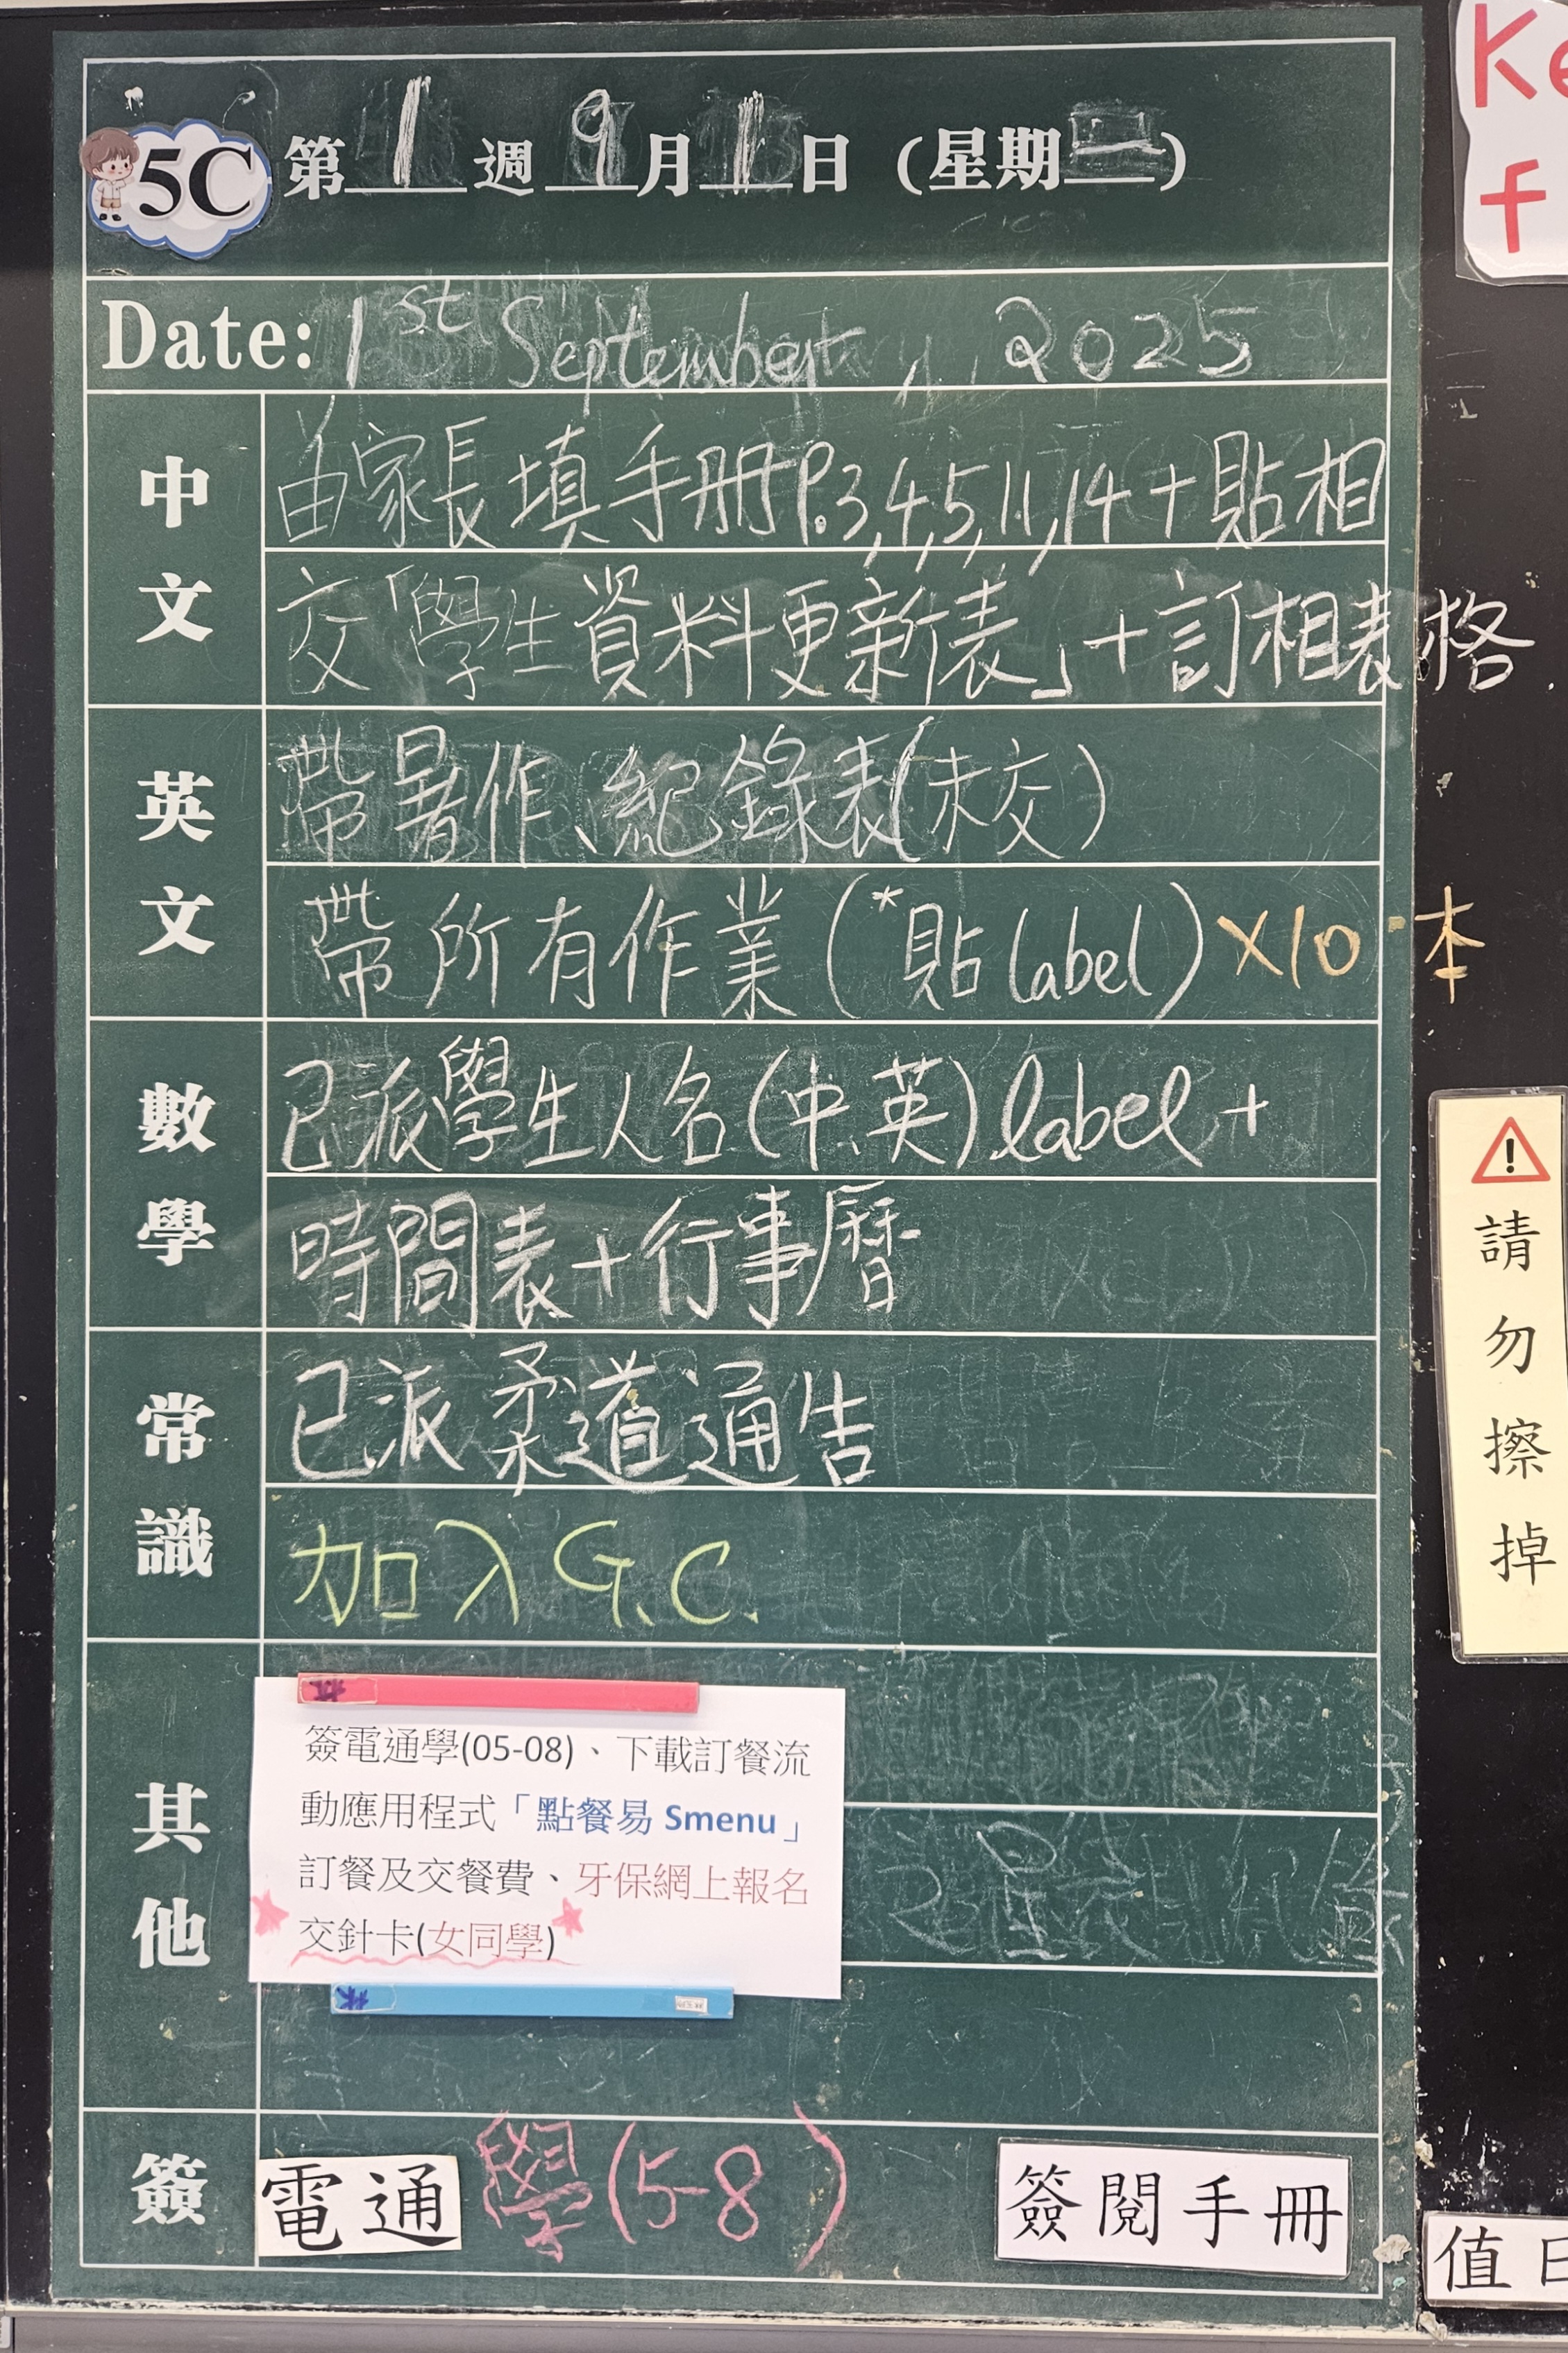 5C 第1週 9月1日 (星期一)
Date: 1st September, 2025
中文
由家長填手冊P.3,4,5,11,14+貼相
交「學生資料更新表」+訂相表格
英文
帶暑作、紀錄表(未交)
帶所有作業(*貼label)X10本
數學
已派學生人名(中、英)label+
時間表+行事曆
常識
已派柔道通告
加入G.C.
其他
簽電通學(05-08)、下載訂餐流
動應用程式「點餐易 Smenu」
訂餐及交餐費、牙保網上報名
交針卡(女同學)
簽
電通學(5-8)
簽閱手冊
Ke
f
請勿擦掉
值日